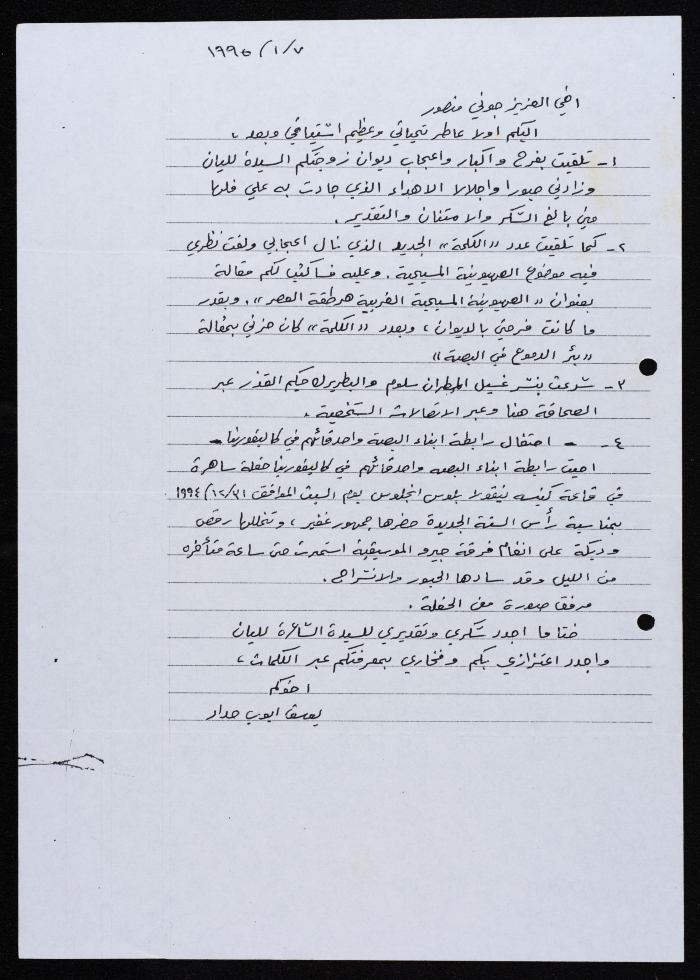 ١٩٩٥/١/٧
اخي العزيز جوني منصور
اليكم اولا عاطر تحياتي وعظيم اشتياقي وبعد ،
١- تلقيت بفرح واكبار واعجاب ديوان زوجتكم السيدة لليان
وزادني حبورا واجلالا الاهداء الذي جادت به علي فلها
مني بالغ الشكر والامتنان والتقدير .
٢- كما تلقيت عدد "الكلمة" الجديد الذي نال اعجابي ولفت نظري
فيه موضوع الصهيونية المسيحية . وعليه فسأكتب لكم مقالة
بعنوان "الصهيونية المسيحية الغربية هرطقة العصر" . وبقدر
ما كانت فرحتي بالديوان ، وبعدد "الكلمة" كان حزني بمقالة
"بئر الدموع في البصة"
٣- شرعت بنشر غسيل المطران سلوم والبطريرك حكيم القذر عبر
الصحافة هنا وعبر الاتصالات الشخصية .
٤- - احتفال رابطة ابناء البصة واصدقائهم في كاليفورنيا -
احيت رابطة ابناء البصه واصدقائهم في كاليفورنيا حفلة ساهرة
في قاعة كنيسه نيقولا بلوس انجلوس يوم السبت الموافق ١٩٩٤/١٢/٣١
بمناسبة رأس السنة الجديدة حضرها جمهور غفير ، وتخللها رقص
ودبكة على انغام فرقة جيرو الموسيقية استمرت حتى ساعة متأخره
من الليل وقد سادها الحبور والانشراح .
مرفق صورة من الحفلة .
ختاما اجدد شكري وتقديري للسيدة الشاعرة لليان
واجدد اعتزازي بكم وفخاري بمعرفتكم عبر الكلمات ،
اخوكم
يوسف ايوب حداد